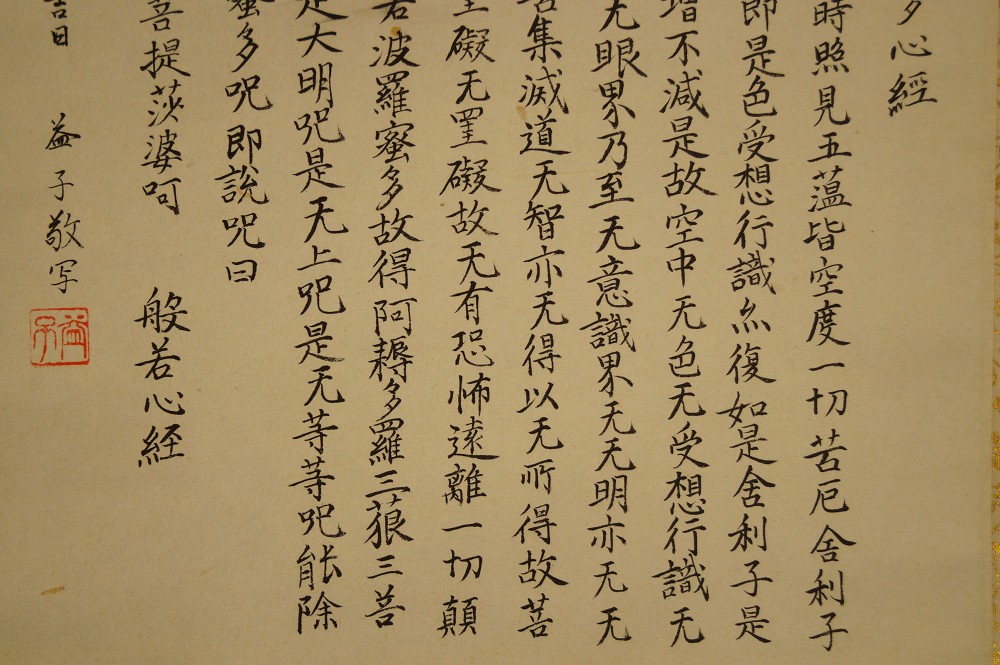 多心經
時照見五蒕皆空度一切苦厄舍利子
即是色受想行識亦復如是舍利子是
增不減是故空中无色无受想行識无
无眼界乃至无意識界无无明亦无无
苦集滅道无智亦无得以无所得故菩
罣礙无罣礙故无有恐怖遠離一切顛
若波羅蜜多故得阿耨多羅三藐三菩
是大明咒是无上咒是无等等咒能除
蜜多咒即說咒曰
菩提莎婆呵 般若心経
吉日 益子敬写
益子